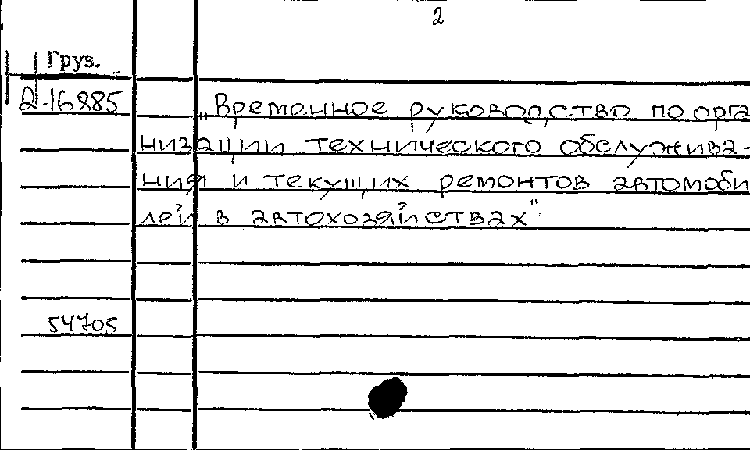 2
Груз.
2-16885
„Временное руководство по орга
низации технического обслужива-
ния и текущих ремонтов автомоби
лей в автохозяйствах"
54705